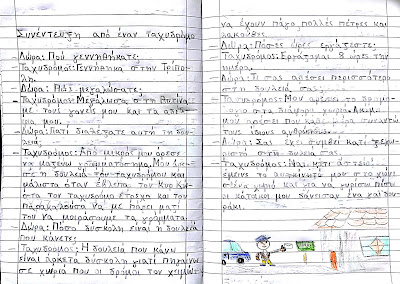 Συνέντευξη από έναν ταχυδρόμο
-Δώρα: Πού γεννηθήκατε;
-Ταχυδρόμος: Γεννήθηκα στην Τρίπολη.
-Δώρα: Πώς μεγαλώσατε;
-Ταχυδρόμος: Μεγάλωσα στη
με τους γονείς μου και τα αδέλφια μου.
-Δώρα: Γιατί διαλέξατε αυτή τη δουλειά;
-Ταχυδρόμος: Από μικρός μου άρεσε
να μαζεύω γραμματόσημα. Μου άρεσε
η δουλειά του ταχυδρόμου και
μάλιστα όταν έβλεπα τον κυρ Κώστα
τον ταχυδρόμο έτρεχα και τον
παρακαλούσα να με πάρει μαζί
του να μοιράσουμε τα γράμματα.
-Δώρα: Πόσο δύσκολη είναι η δουλειά
που κάνετε;
-Ταχυδρόμος: Η δουλειά που κάνω
είναι αρκετά δύσκολη γιατί πηγαίνω
σε χωριά που οι δρόμοι τον χειμώνα
να έχουν πάγο πολλές πέτρες και
λακούβες.
-Δώρα: Πόσες ώρες εργάζεστε;
-Ταχυδρόμος: Εργάζομαι 8 ώρες την
ημέρα.
-Δώρα: Τι σας αρέσει περισσότερο
στη δουλειά σας;
-Ταχυδρόμος: Μου αρέσει το
στα διάφορα χωριά
που κάθε μέρα συναντώ
τους ίδιους ανθρώπους.
-Δώρα: Σας έχει συμβεί κάτι
στη δουλειά
-Ταχυδρόμος: Ναι, κάτι αστείο!
έμεινε το αυτοκίνητό μου στο χιόνι
σ'ένα χωριό και για να γυρίσω πίσω
οι κάτοικοι μου δάνεισαν ένα γαϊδουράκι.